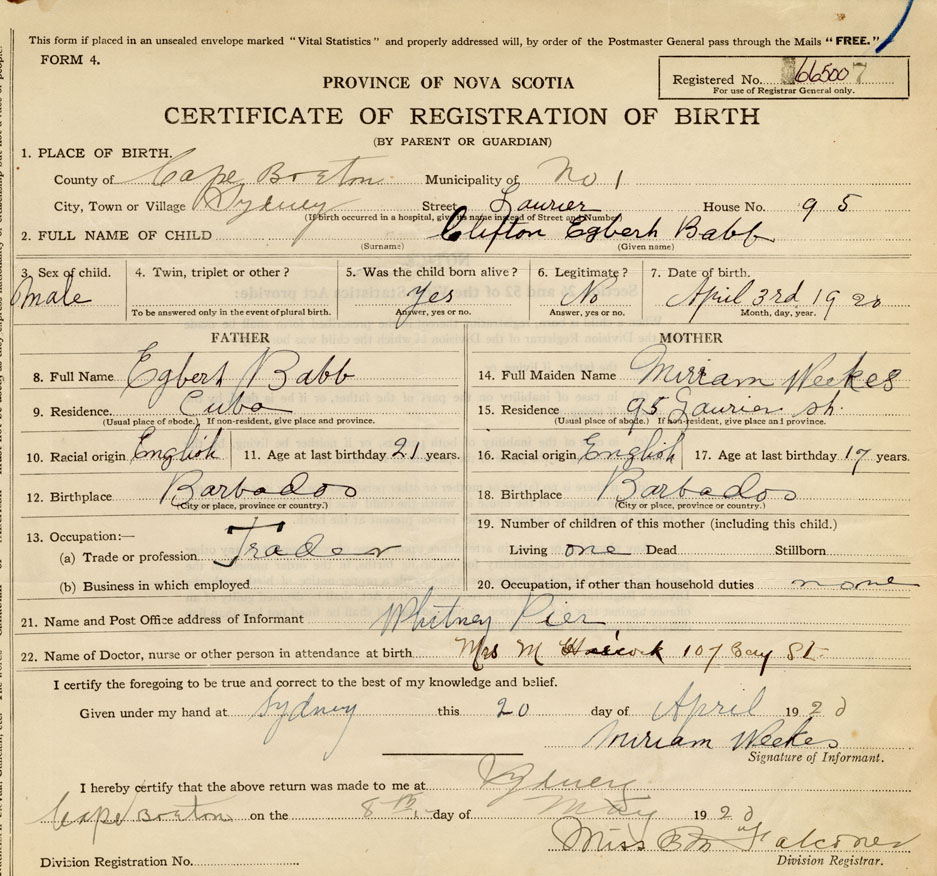 This form if placed in an unsealed envelope marked "Vital Statistics" and properly addressed will, by order of the Postmaster General pass through the Mails "FREE."
FORM 4.
PROVINCE OF NOVA SCOTIA
Registered No. 665007
For use of Registrar General only.
CERTIFICATE OF REGISTRATION OF BIRTH
(BY PARENT OR GUARDIAN)
1. PLACE OF BIRTH.
County of Cape Breton Municipality of No 1
City, Town or Village Sydney Street Laurier House No. 95
(If birth occurred in a hospital, give its name instead of Street and Number)
2. FULL NAME OF CHILD Clifton Egbert Babb
(Surname) (Given name)
3. Sex of child. 4. Twin, triplet or other? 5. Was the child born alive? 6. Legitimate? 7. Date of birth.
Male Yes No April 3rd 1920
To be answered only in the event of plural birth. Answer, yes or no. Answer, yes or no. Month, day, year.
FATHER
8. Full Name Egbert Babb
9. Residence. Cuba
(Usual place of abode.) If non-resident, give place and province.
10. Racial origin English 11. Age at last birthday 21 years.
12. Birthplace Barbados
(City or place, province or country.)
13. Occupation:—
(a) Trade or profession Trader
(b) Business in which employed
MOTHER
14. Full Maiden Name Mirriam Weekes
15. Residence 95 Laurier St.
(Usual place of abode.) If non-resident, give place and province.
16. Racial origin English 17. Age at last birthday 17 years.
18. Birthplace Barbados
(City or place, province or country.)
19. Number of children of this mother (including this child.)
Living one Dead Stillborn
20. Occupation, if other than household duties none
21. Name and Post Office address of Informant Whitney Pier
22. Name of Doctor, nurse or other person in attendance at birth Mrs M 107 Bay St.
I certify the foregoing to be true and correct to the best of my knowledge and belief.
Given under my hand at Sydney this 20 day of April 1920
Miriam Weekes
Signature of Informant.
I hereby certify that the above return was made to me at Sydney
Cape Breton on the 8th day of May 1920
Miss Falconer
Division Registration No. Division Registrar.